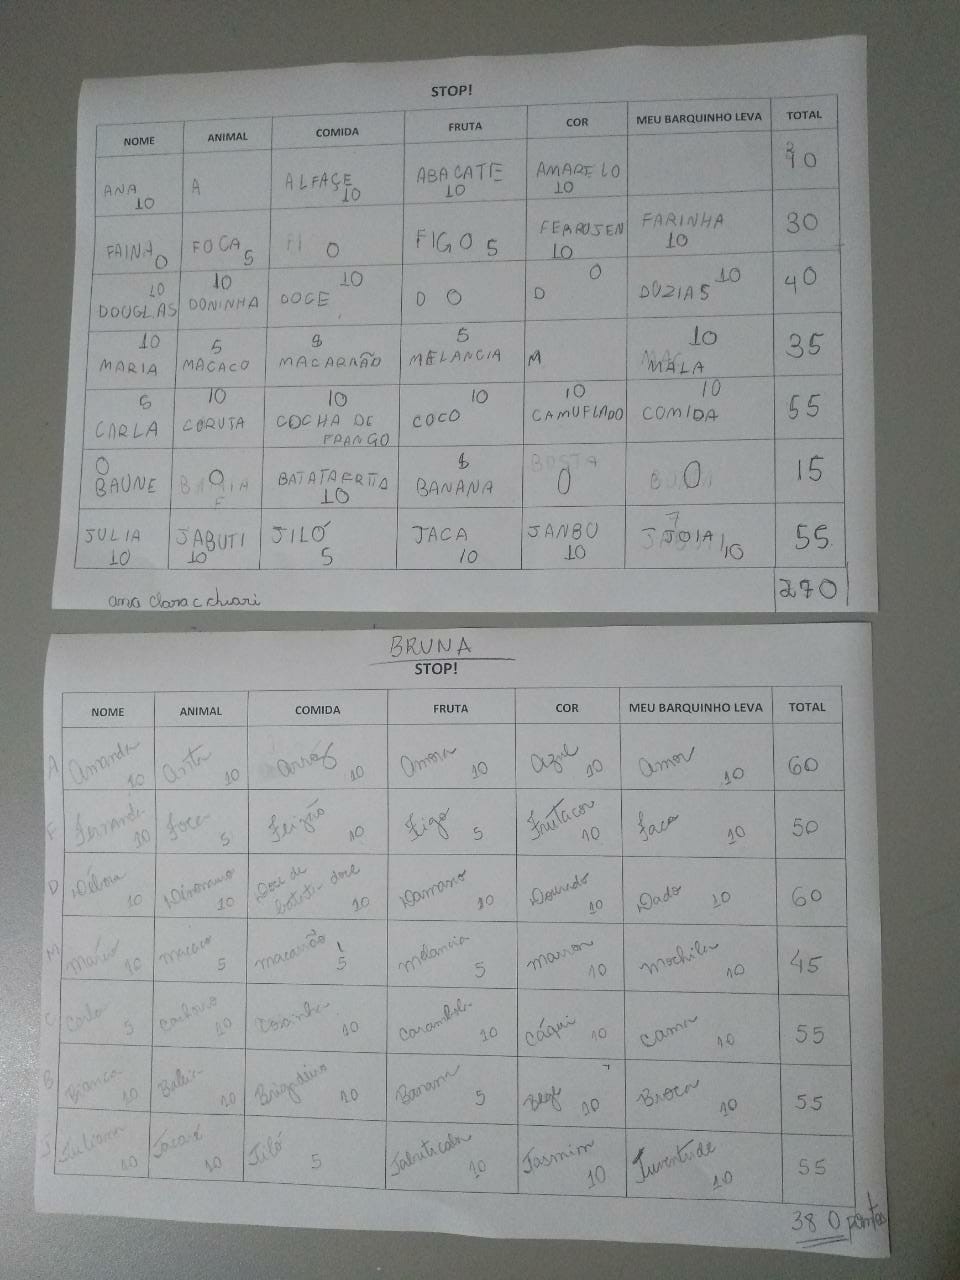 STOP!
NOME ANIMAL COMIDA FRUTA COR MEU BARQUINHO LEVA TOTAL
ANA 10 A ALFAÇE 10 ABACATE 10 AMARELO 10
FAINA 0 FOCA 5 0 FIGO 5 FERRUJEN 10 FARINHA 10 30
DOUGLAS 10 DONINHA 10 DOCE 10 D 0 D 0 DUZIAS 10 40
MARIA 10 MACACO 5 MACARRÃO MELANCIA 5 M MALA 10 35
CARLA 5 CORUJA 10 COCHA DE FRANGO 10 COCO 10 CAMUFLADO 10 COMIDA 10 55
BAUNE 0 0 BATATAFRITA 10 BANANA 0 0 15
JULIA 10 JABUTI 10 JILÓ 5 JACA 10 JANBO 10 JOIA 10 55
ana clara c chiari 270
BRUNA
STOP!
NOME ANIMAL COMIDA FRUTA COR MEU BARQUINHO LEVA TOTAL
A Amanda 10 Anta 10 Arroz 10 Amora 10 Azul 10 Amor 10 60
F Fernanda 10 Foca 5 Feijão 10 Figo 5 Frutacor 10 Faca 10 50
D Débora 10 Dinossauro 10 Doce de batata-doce 10 Damasco 10 Dourado 10 Dado 10 60
M Mário 10 macaco 5 macarrão 5 melancia 5 marrom 10 mochila 10 45
C Carla 5 cachorro 10 Coxinha 10 Carambola 10 Cáqui 10 Cama 10 55
B Bianca 10 Baleia 10 Brigadeiro 10 Banana 5 Bege 10 Broca 10 55
J Juliana 10 Jacaré 10 Jiló 5 Jabuticaba 10 Jasmim 10 Juventude 10 55
380 pontos